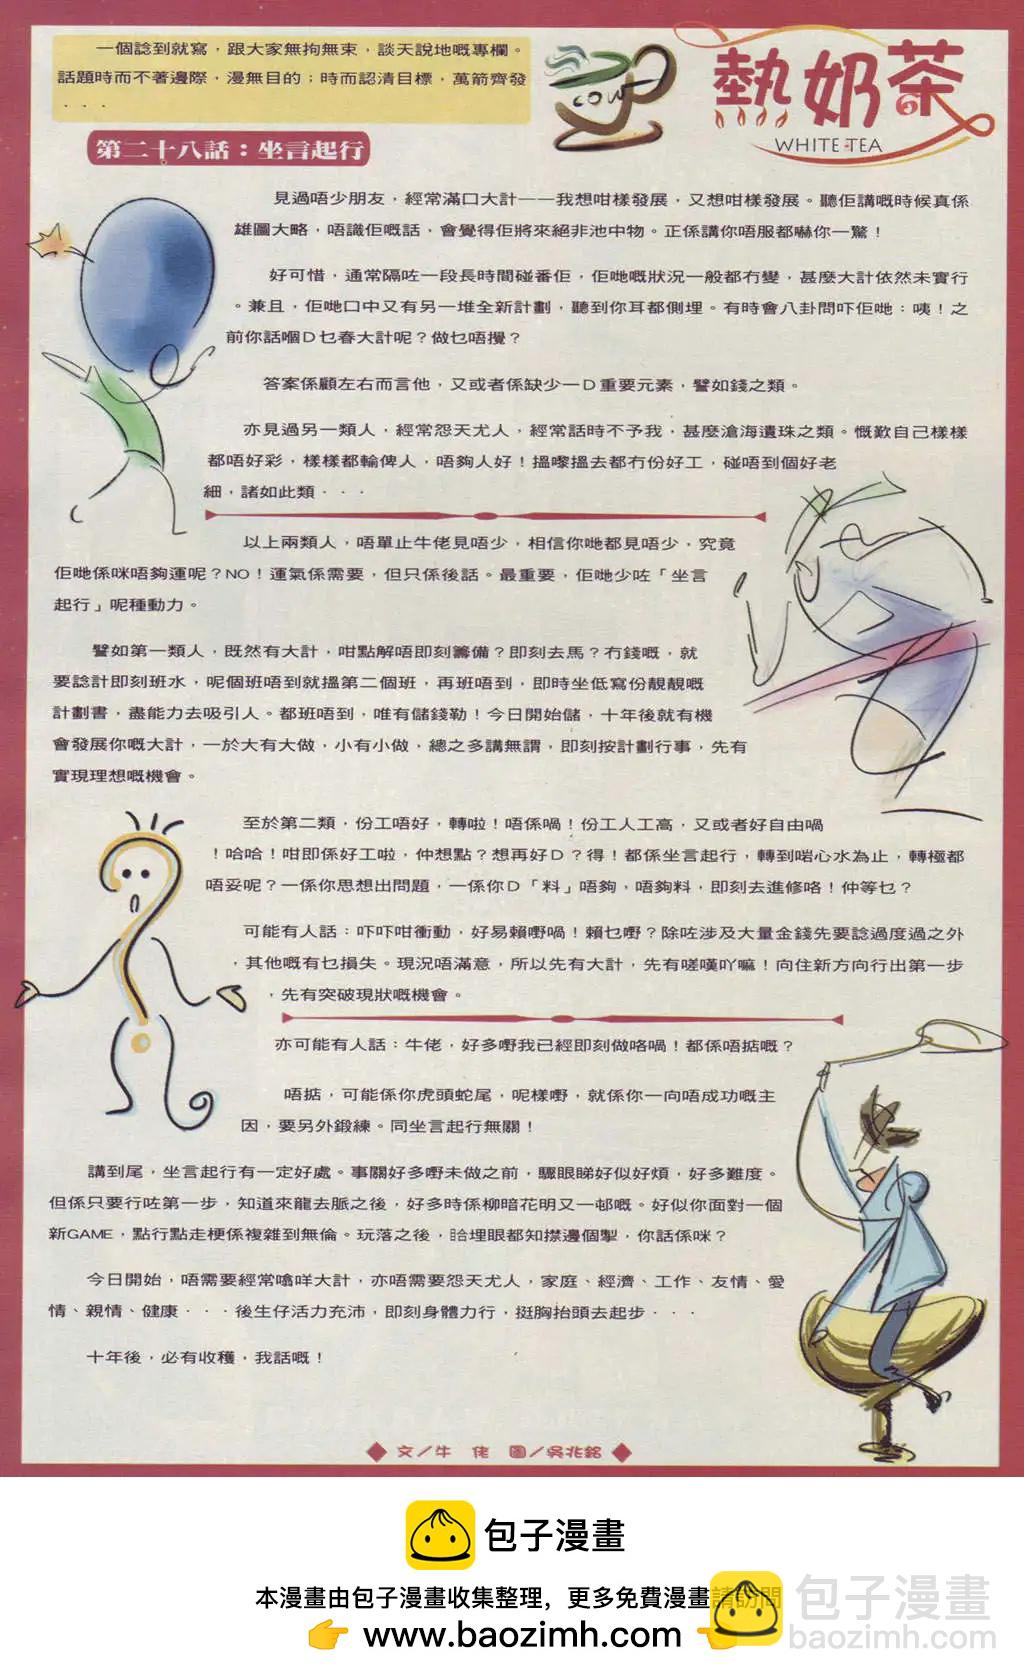 一個諗到就寫，跟大家無拘無束，談天說地嘅專欄。
話題時而不著邊際，漫無目的；時而認清目標，萬箭齊發
···
COW
熱奶茶
WHITE TEA
第二十八話：坐言起行
見過唔少朋友，經常滿口大計——我想咁樣發展，又想咁樣發展。聽佢講嘅時候真係
雄圖大略，唔識佢嘅話，會覺得佢將來絕非池中物。正係講你唔服都嚇你一驚！
好可惜，通常隔咗一段長時間碰番佢，佢哋嘅狀況一般都冇變，甚麼大計依然未實行
。兼且，佢哋口中又有另一堆全新計劃，聽到你耳都側埋。有時會八卦問吓佢哋：咦！之
前你話嗰D乜春大計呢？做乜唔攪？
答案係顧左右而言他，又或者係缺少一D重要元素，譬如錢之類。
亦見過另一類人，經常怨天尤人，經常話時不予我，甚麼滄海遺珠之類。慨歎自己樣樣
都唔好彩，樣樣都輸俾人，唔夠人好！搵嚟搵去都冇份好工，碰唔到個好老
細，諸如此類···
以上兩類人，唔單止牛佬見唔少，相信你哋都見唔少，究竟
佢哋係咪唔夠運呢？NO！運氣係需要，但只係後話。最重要，佢哋少咗「坐言
起行」呢種動力。
譬如第一類人，既然有大計，咁點解唔即刻籌備？即刻去馬？冇錢嘅，就
要諗計即刻班水，呢個班唔到就搵第二個班，再班唔到，即時坐低寫份靚靚嘅
計劃書，盡能力去吸引人。都班唔到，唯有儲錢勒！今日開始儲，十年後就有機
會發展你嘅大計，一於大有大做，小有小做，總之多講無謂，即刻按計劃行事，先有
實現理想嘅機會。
至於第二類，份工唔好，轉啦！唔係喎！份工人工高，又或者好自由喎
！哈哈！咁即係好工啦，仲想點？想再好D？得！都係坐言起行，轉到啱心水為止，轉極都
唔妥呢？一係你思想出問題，一係你D「料」唔夠，唔夠料，即刻去進修咯！仲等乜？
可能有人話：吓吓咁衝動，好易賴嘢喎！賴乜嘢？除咗涉及大量金錢先要諗過度過之外
，其他嘅有乜損失。現況唔滿意，所以先有大計，先有嗟嘆吖嘛！向住新方向行出第一步
，先有突破現狀嘅機會。
亦可能有人話：牛佬，好多嘢我已經即刻做咯喎！都係唔掂嘅？
唔掂，可能係你虎頭蛇尾，呢樣嘢，就係你一向唔成功嘅主
因，要另外鍛練。同坐言起行無關！
講到尾，坐言起行有一定好處。事關好多嘢未做之前，驟眼睇好似好煩，好多難度。
但係只要行咗第一步，知道來龍去脈之後，好多時係柳暗花明又一邨嘅。好似你面對一個
新GAME，點行點走梗係複雜到無倫。玩落之後，眙埋眼都知㩒邊個掣，你話係咪？
今日開始，唔需要經常噏咩大計，亦唔需要怨天尤人，家庭、經濟、工作、友情、愛
情、親情、健康···後生仔活力充沛，即刻身體力行，挺胸抬頭去起步···
十年後，必有收穫，我話嘅！
文／牛 佬 圖／吳兆銘
包子漫畫
本漫畫由包子漫畫收集整理，更多免費漫畫請訪問
www.baozimh.com
包子漫畫
baozimh.com